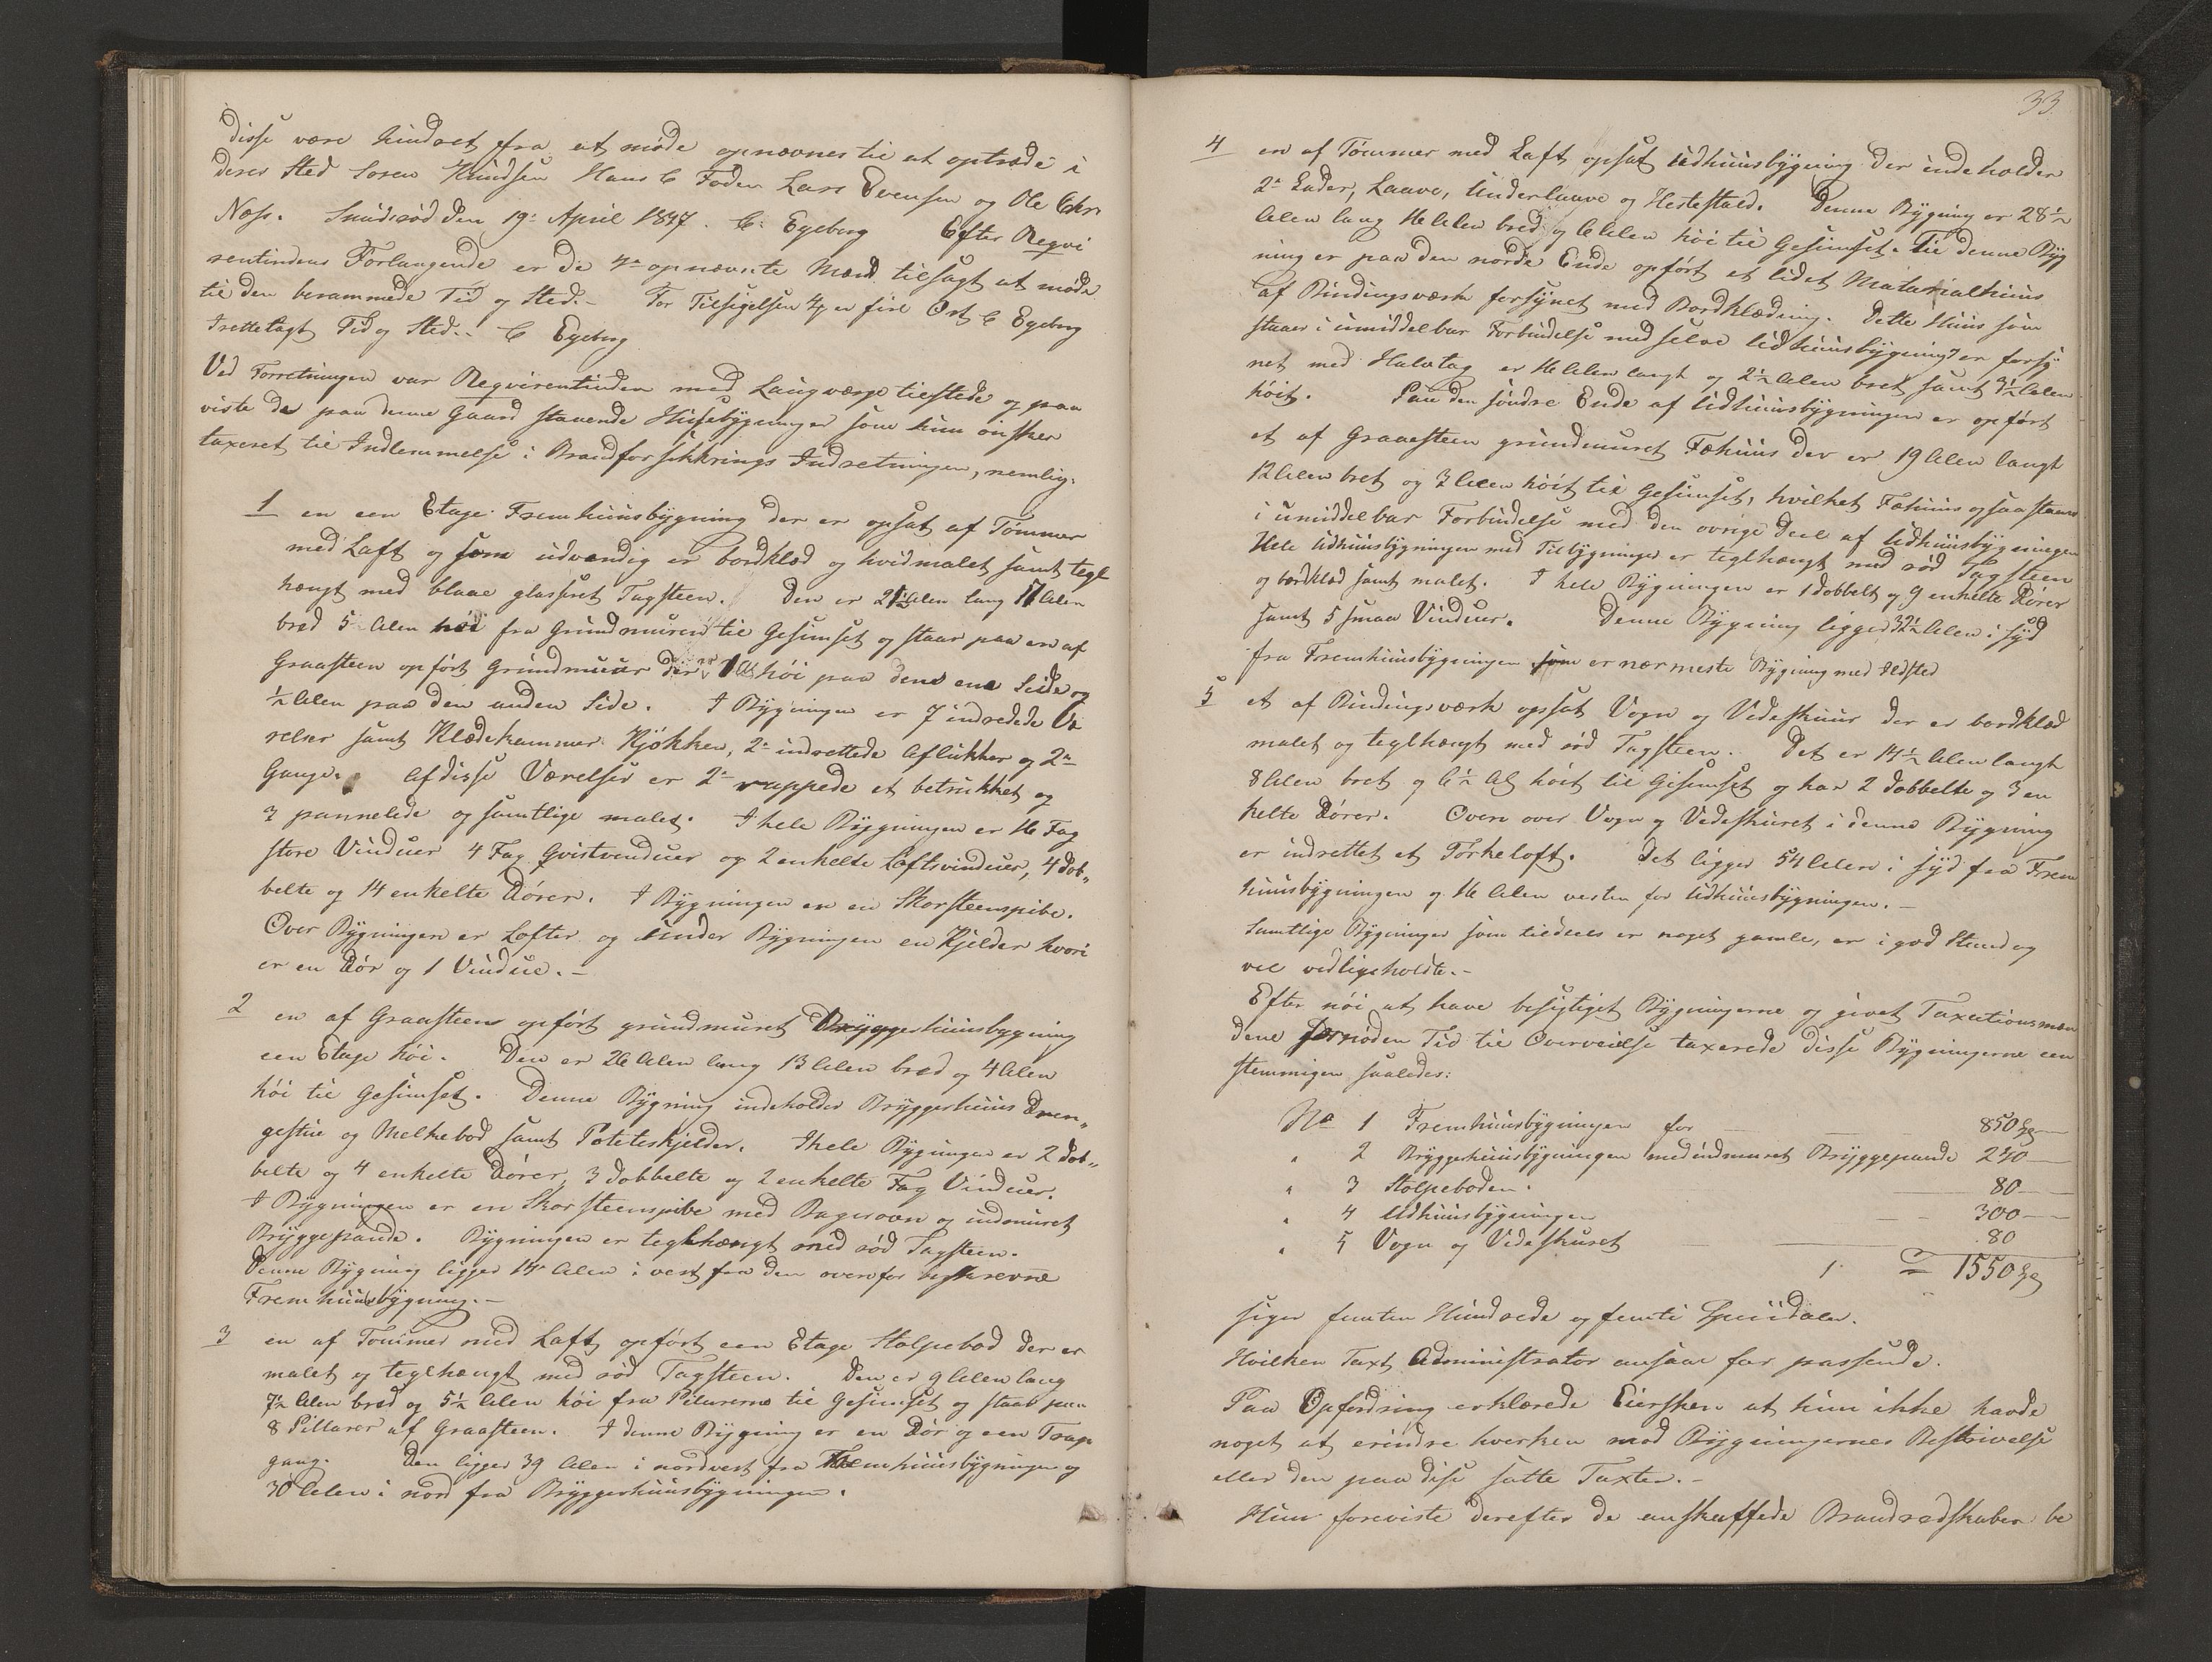 disse være hindret fra at møde opnævnes til at optræde i
deres Sted Soren Knudsen Hans C Foden Lars Evensen og Ole Chr:
Næss. Smidsrød den 19de April 1847. C. Egeberg Efter Reqvi
rentindens Forlangende er de 4re opnævnte Mænd tilsagt at møde
til den berammede Tid og Sted.- For Tilsigelsen 4/ er fire Ort C Egeberg
Irettelagt Tid og Sted.- C Egeberg
Ved Forretningen var Reqvirentinden med Laugværge tilstede og paa
viste de paa denne Gaard staaende Husebygninger som hun ønsker
taxeret til Indlemmelse i Brandforsikkrings Indretningen, nemlig:
1 en een Etage Fremhuusbygning der er opsat af Tømmer
med Laft og som udvendig er bordklæd og hvidmalet samt tegl
hængt med blaae glasseret Tagsteen. Den er 21½ Alen lang 17 Alen
bred 5 Alen høi fra Grundmuren til Gesimset og staar paa en af
Graasteen opført Grundmuur der er 1 Al høi paa den ene Side og
½ Alen paa den anden Side. I Bygningen er 7 indredede Væ
relser samt Klædekammer Kjøkken, 2de indrettede Aflukker og 2de
Gange. Af disse Værelser er 2de rappede et betrukket og
3 pannelede og samtlige malet. I hele Bygningen er 16 Fag
store Vinduer 4 Fag Qvistvinduer og 2 enkelte Loftsvinduer, 4 dob„
belte og 14 enkelte Dører. I Bygningen er en Skorsteenspibe.
Over Bygningen er Lofter og under Bygningen en Kjelder hvori
er en Dør og 1 Vindue.-
2 en af Graasteen opført grundmuret Bryggerhuusbygning
een Etage høi. Den er 26 Alen lang 13 Alen bred og 4 Alen
høi til Gesimset. Denne Bygning indeholder Bryggerhuus Dren„
gestue og Melkebod samt Poteteskjelder. I hele Bygningen er 2 dob„
belte og 4 enkelte Dører, 3 dobbelte og 2 enkelte Fag Vinduer.
I Bygningen er en Skorsteenspibe med Bagerovn og indmuret
Bryggepande. Bygningen er teglhængt med rød Tagsteen.
Denne Bygning ligger 14 Alen i vest fra den ovenfor beskrevne
Fremhuusbygning.-
3 en af Tømmer med Laft opført een Etage Stolpebod der er
malet og teglhængt med rød Tagsteen. Den er 9 Alen lang
7½ Alen bred og 5½ Alen høi fra Pilarerne til Gesimset og staar paa
8 Pillarer af Graasteen. I denne Bygning er en Dør og een Trap
gang. Den ligger 39 Alen i nordvest fra Fremhuusbygningen og
30 Alen i nord fra Bryggerhuusbygningen.
33.
4 en af Tømmer med Laft opsat Udhuusbygning der indeholder
2de Lader, Laave, Underlaave og Hestestald. Denne Bygning er 28½
Alen lang 16 Alen bred og 6 Alen høi til Gesimset. Til denne Byg
ning er paa den nordre Ende opført et lidet Materialhuus
af Bindingsværk forsynet med Bordklædning. Dette Huus som
staaer i umiddelbar Forbindelse med selve Udhuusbygningen er forsy
net med Halvtag er 16 Alen langt og 2½ Alen bret samt 3½ Alen
høit. Paa den søndre Ende af Udhuusbygningen er opført
et af Graaesteen grundmuret Fæhuus der er 19 Alen langt
12 Alen bret og 3 Alen høit til Gesimset, hvilket Fæhuus ogsaa staaer
i umiddelbar Forbindelse med den øvrige Deel af Udhuusbygningen
Hele Udhuusbygningen med Tilbygninger er teglhængt med rød Tagsteen
og bordklæd samt malet. I hele Bygningen er 1 dobbelt og 9 enkelte Dører
samt 5 smaa Vinduer. Denne Bygning ligger 32½ Alen i syd
fra Fremhuusbygningen som er nærmeste Bygning med Ildsted
5 et af Bindingsværk opsat Vogn og Vedeskuur der er bordklæd
malet og teglhængt med rød Tagsteen. Det er 14½ Alen langt
8 Alen bret og 6½ Al høit til Gesimset og har 2 dobbelte og 3 en
kelte Dører. Oven over Vogn og Vedeskuret i denne Bygning
er indrettet et Tørkeloft. Det ligger 54 Alen i syd fra Frem
huusbygningen og 16 Alen vesten for Udhuusbygningen.-
Samtlige Bygninger som tildeels er noget gamle, er i god Stand og
vel vedligeholdte.-
Efter nøi at have besigtiget Bygningerne og givet Taxationsmæn
dene fornøden Tid til Overveielse taxerede disse Bygningerne een
stemmigen saaledes:
No 1 Fremhuusbygningen for 850 Spd
" 2 Bryggerhuusbygningen med indmuret Bryggepande 240
" 3 Stolpeboden. 80
" 4 Udhuusbygningen 300
" 5 Vogn og Vedeskuret 80
= 1550 Spd
siger femten Hundrede og femti Speciedaler.
Hvilken Taxt Administrator ansaae for passende.
Paa Opfordring erklærede Eiersken at hun ikke havde
noget at erindre hverken mod Bygningernes Beskrivelse
eller den paa disse satte Taxter.-
Hun foreviste derefter de anskaffede Brandredskaber be